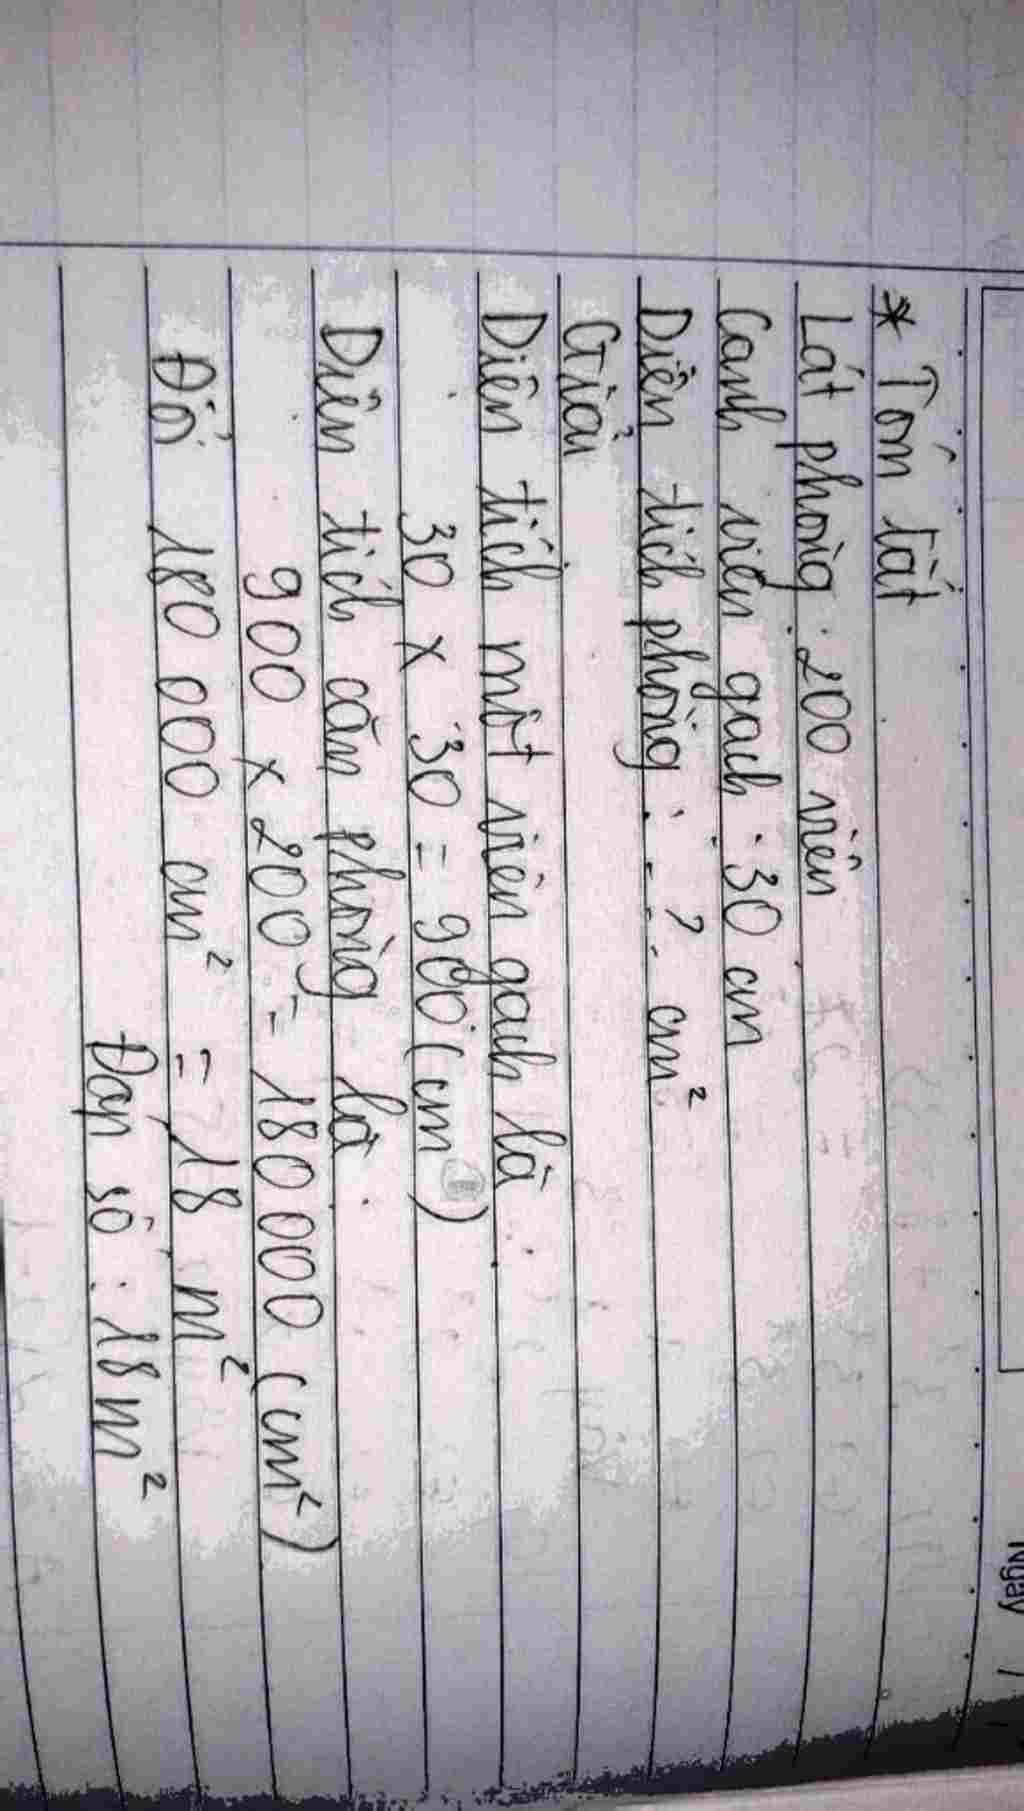 Ngày /
* Tóm tắt
Lát phòng : 200 viên
Cạnh viên gạch : 30 cm
Diện tích phòng : ..?.. cm²
Giải
Diện tích một viên gạch là :
30 x 30 = 900 (cm )
Diện tích căn phòng là :
900 x 200 = 180 000 (cm²)
Đổi 180 000 cm² = 18 m²
Đáp số : 18m²